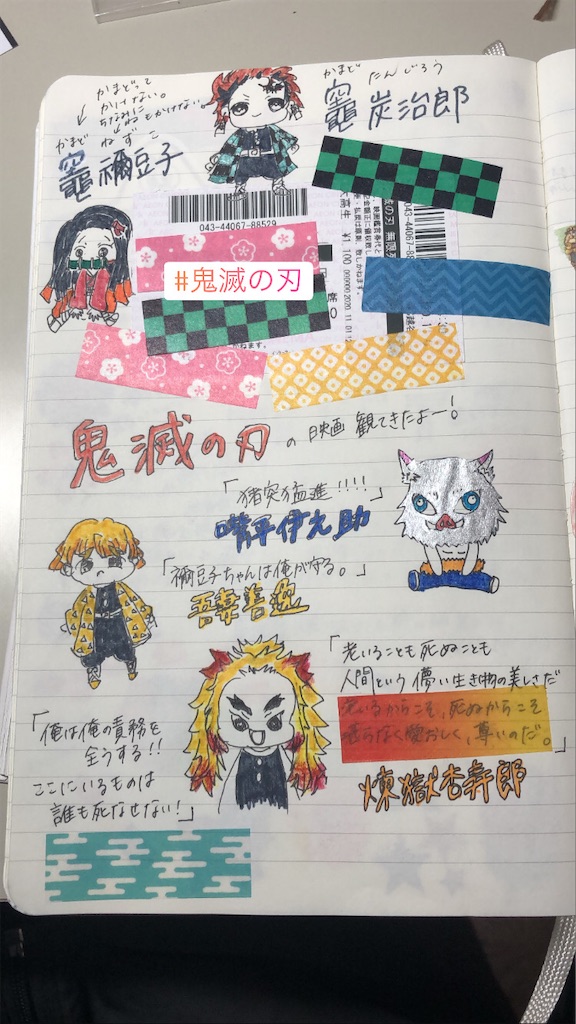 かまどって
かけない。
ちなみに
ねもかけない
かまど
ねずこ
竈 禰豆子
かまど たんじろう
竈 炭治郎
043-44067-88529
043-44067-88
¥1,100
#鬼滅の刃
鬼滅の刃の映画観てきたよー!
「猪突猛進!!!!」
嘴平伊之助
「禰豆子ちゃんは俺が守る。」
吾妻善逸
「老いることも死ぬことも
人間という儚い生き物の美しさだ
老いるからこそ、死ぬからこそ
堪らなく愛おしく、尊いのだ。」
煉獄杏寿郎
「俺は俺の責務を
全うする!!
ここにいるものは
誰も死なせない!」